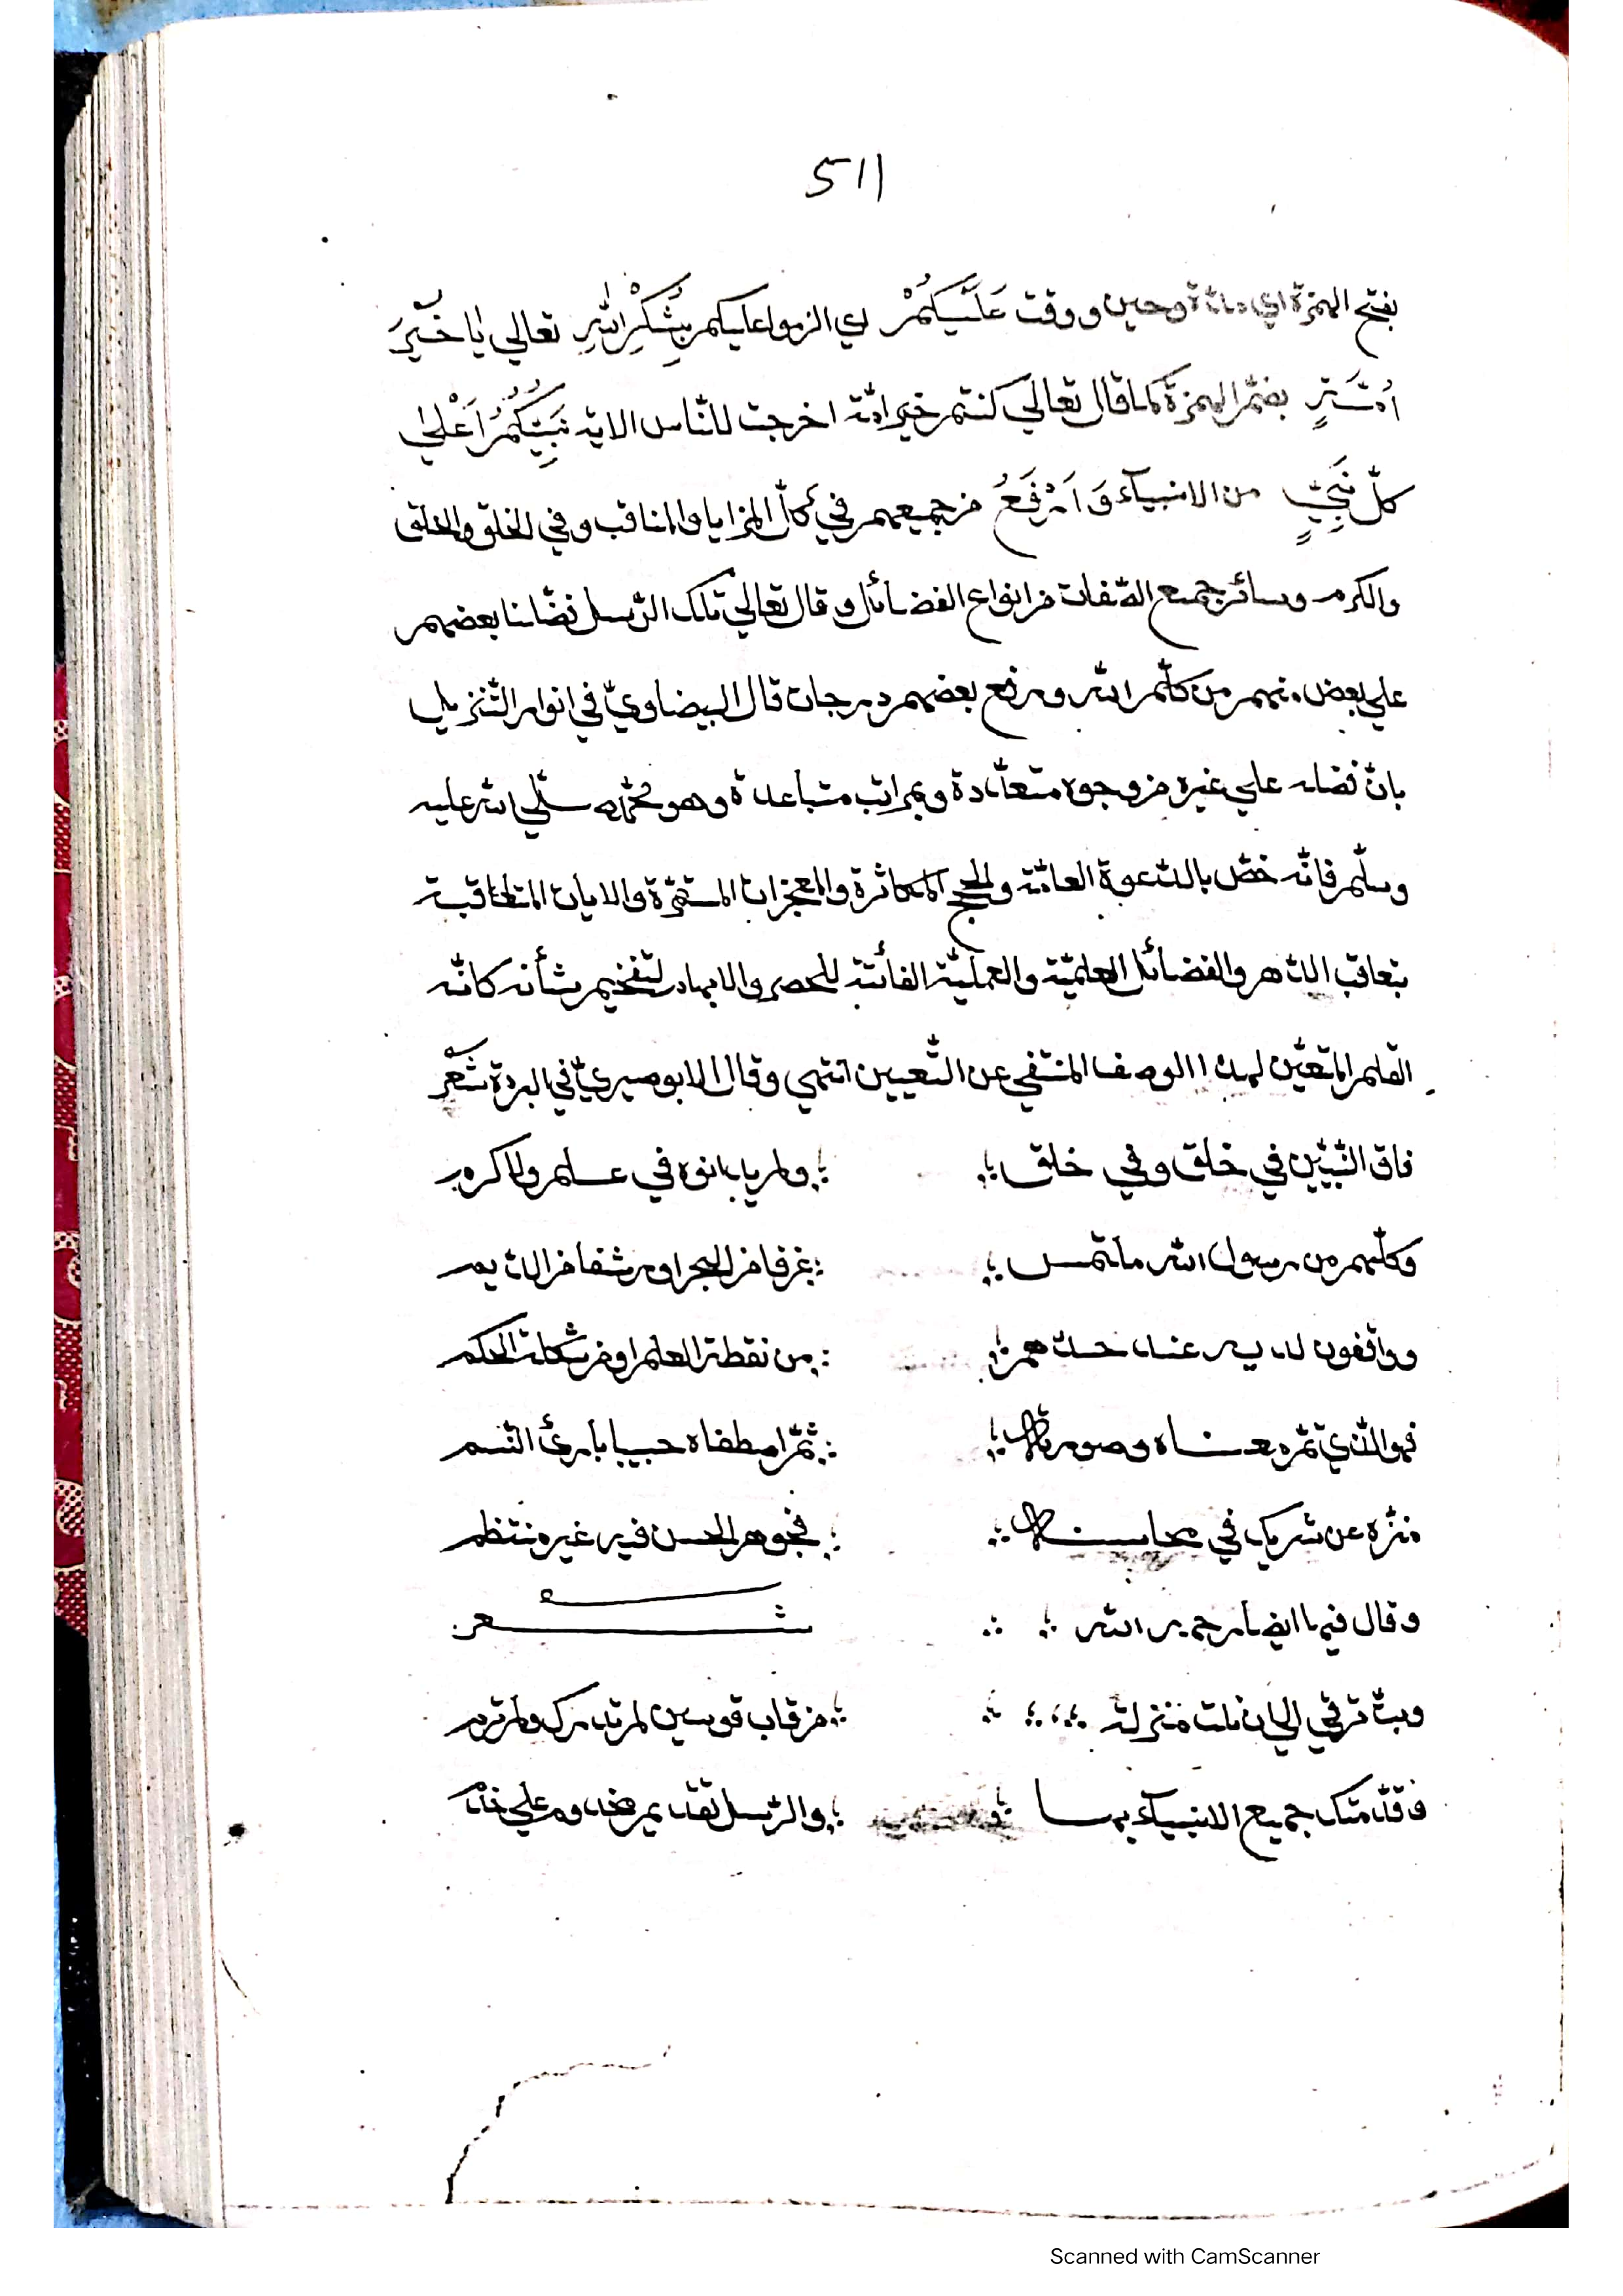 511
بفتح الهمزة اي مدّة وحين ووقت عَلَيْكُمْ اي الزموا عليكم بِشُكْرِ اللهِ تعالي يا خَيْرَ
اُمَّةٍ بضمّ الهمزة كما قال تعالي كنتم خير امّة اخرجت للنّاس الاية نَبِيُّكُمُ اَعْلٰي
كلّ نَبِيٍّ من الانبيآء وَاَرْفَعُ من جميعهم في كلّ المزايا والمناقب وفي الخلق والخلق
والكرم وسائر جميع الصّفات من انواع الفضائل وقال تعالي تلك الرّسل فضّلنا بعضهم
علي بعض منهم من كلّم الله ورفع بعضهم درجات قال البيضاويّ في انوار التّنزيل
بانّ فضله علي غيره من وجوه متعدّدة وبمراتب متباعدة وهو محمّد صلّي الله عليه
وسلّم فانّه خصّ بالدّعوة العامّة والحجج المتكاثرة والمعجزات المستمرّة والايات المتعاقبة
بتعاقب الدّهر والفضائل العلميّة والعمليّة الفائتة للحصر والابهام لتفخيم شأنه كانّه
العلم المتعيّن لهذا الوصف المستغني عن التّعيين انتهي وقال الابوصيريّ في البردة شعر
فاق النّبيّين في خلق وفي خلق ؛ ولم يدانوه في علم ولا كرم
وكلّهم من رسول الله ملتمس ؛ غرفا من البحر او رشفا من الدّيم
وواقفون لديه عند حدّهم ؛ من نقطة العلم او من شكلة الحكم
فهو الّذي تمّ معناه وصورته ؛ ثمّ اصطفاه حبيبا بارئ النّسم
منزّه عن شريك في محاسنه ؛ فجوهر الحسن فيه غير منتظم
وقال فيها ايضا رحمه الله ؛ شعر
وبتّ ترقي الي ان نلت منزلة ؛ من قاب قوسين لم تدرك ولم ترم
وقدّمتك جميع الانبيآء بها ؛ والرّسل تقديم مخدوم علي خدم
Scanned with CamScanner